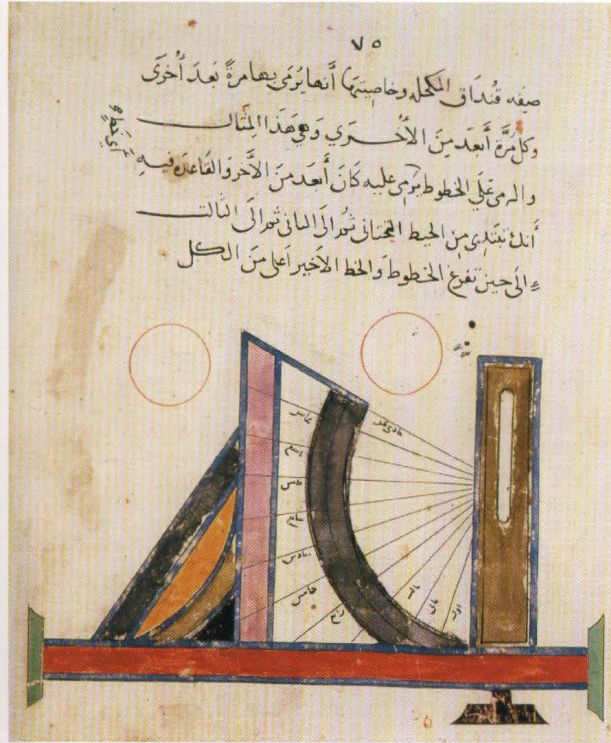 ٧٥
صفه قنداق المكحله وخاصيتها أنها يُرمَى بها مرةً بَعدَ أُخرَى
وكل مُرَّة أَبعَد مِنَ الأُخري وَهي هَذا المِثَال
والرمى عَلَي الخطوط يرمى عليه كَانَ أَبعَد منَ الأخر وَالقَاعدَه فيه
أنك تبتدى من الخيط التحتانى ثُم الَى الثانى ثم الَى الثالث
الَى حين تفرغ الخطوط وَالخط الأخير أعلى منَ الكل
حادى عشر
عاشر
تاسع
ثامن
سابع
سادس
خامس
رابع